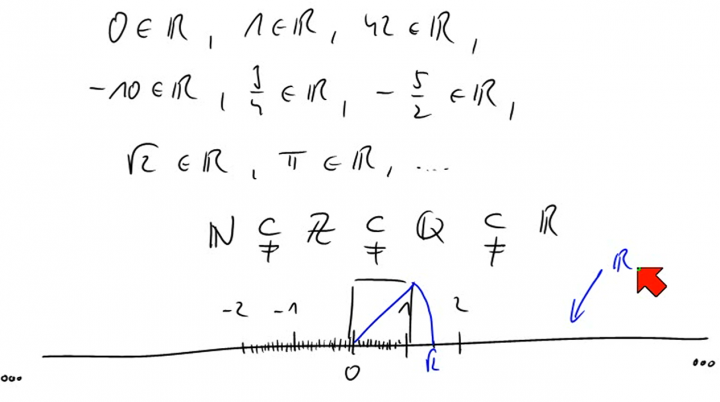 0 ∈ ℝ, 1 ∈ ℝ, 42 ∈ ℝ,
-10 ∈ ℝ, 3/4 ∈ ℝ, -5/2 ∈ ℝ,
√2 ∈ ℝ, π ∈ ℝ, ....
ℕ ⊊ ℤ ⊊ ℚ ⊊ ℝ
ℝ
-2 -1 1 2
0 √2
... ...